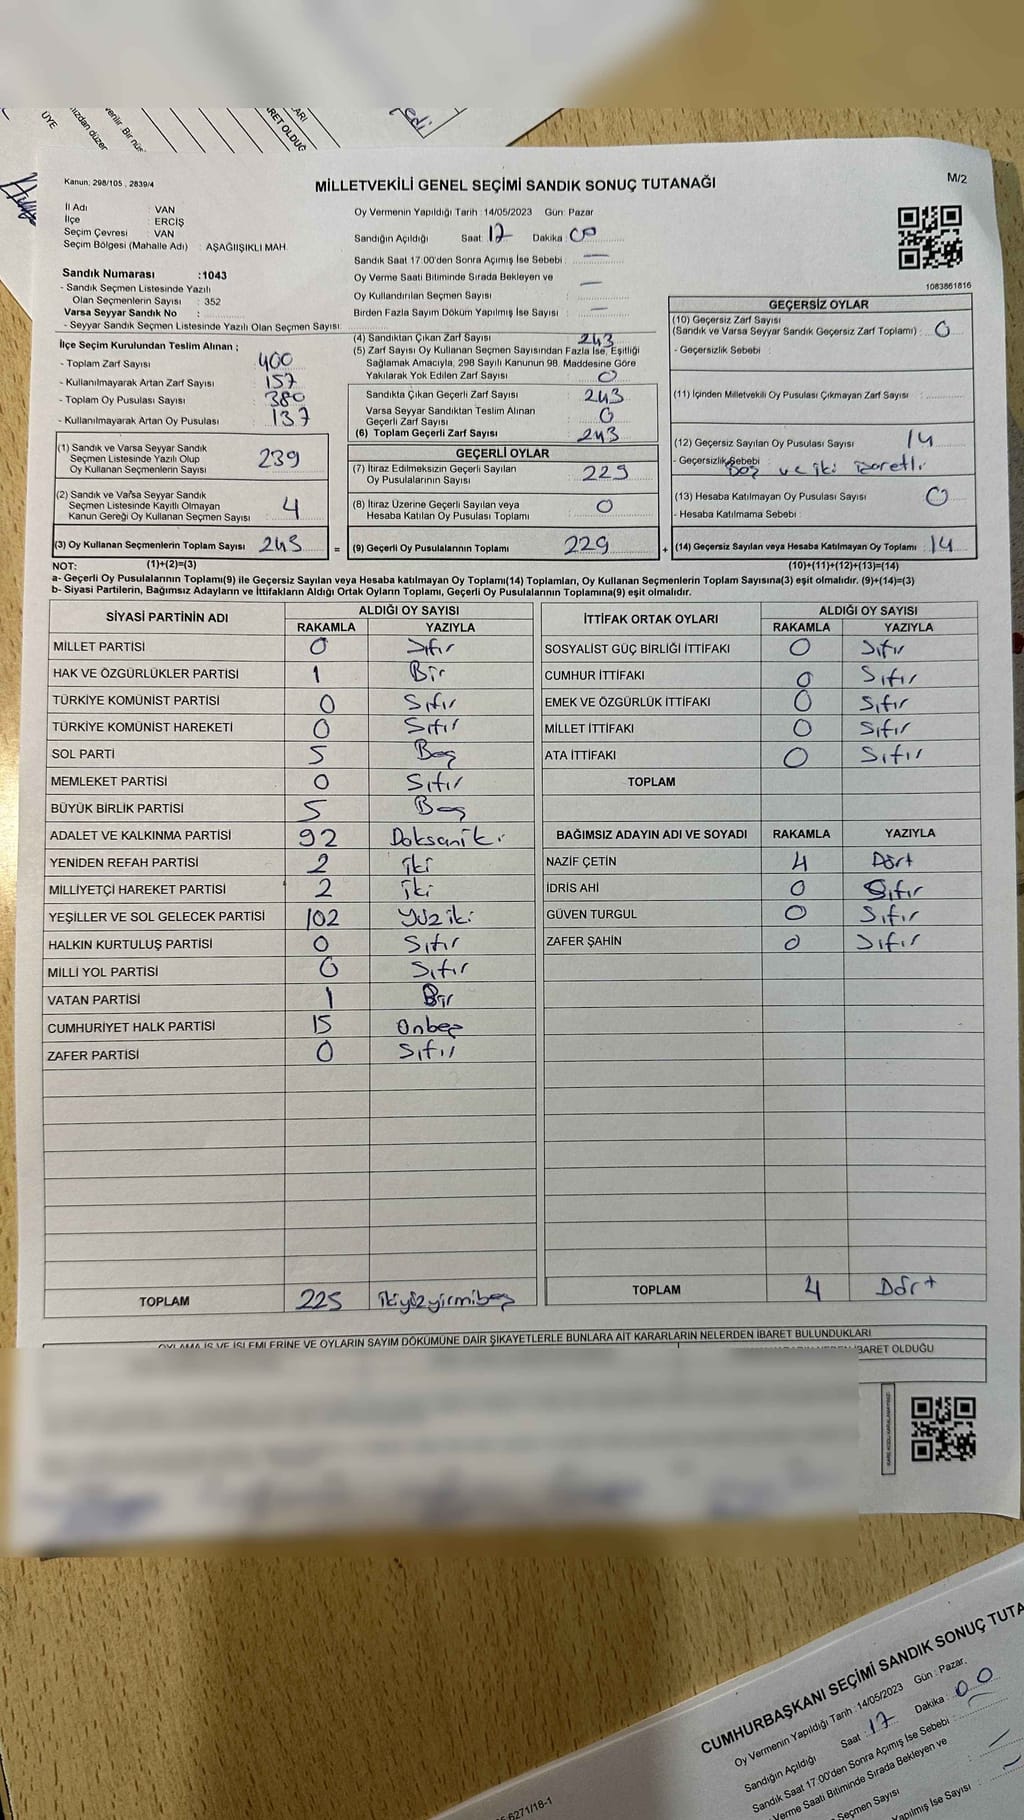 ÜYE
ızdan düzer
verilir. Bir nüs
ARI
RET OLDUĞ
edi
Kanun: 298/105 , 2839/4
MİLLETVEKİLİ GENEL SEÇİMİ SANDIK SONUÇ TUTANAĞI
M/2
İl Adı : VAN
İlçe : ERCİŞ
Seçim Çevresi : VAN
Seçim Bölgesi (Mahalle Adı) : AŞAĞIIŞIKLI MAH.
Oy Vermenin Yapıldığı Tarih : 14/05/2023 Gün: Pazar
Sandığın Açıldığı Saat: 17 Dakika 00
Sandık Saat 17.00'den Sonra Açımış İse Sebebi : —
Oy Verme Saati Bitiminde Sırada Bekleyen ve
Oy Kullandırılan Seçmen Sayısı : —
Birden Fazla Sayım Döküm Yapılmış İse Sayısı : —
1083861816
Sandık Numarası :1043
- Sandık Seçmen Listesinde Yazılı
Olan Seçmenlerin Sayısı : 352
Varsa Seyyar Sandık No :
- Seyyar Sandık Seçmen Listesinde Yazılı Olan Seçmen Sayısı:
İlçe Seçim Kurulundan Teslim Alınan ;
- Toplam Zarf Sayısı : 400
- Kullanılmayarak Artan Zarf Sayısı : 157
- Toplam Oy Pusulası Sayısı : 380
- Kullanılmayarak Artan Oy Pusulası : 137
(1) Sandık ve Varsa Seyyar Sandık
Seçmen Listesinde Yazılı Olup
Oy Kullanan Seçmenlerin Sayısı 239
(2) Sandık ve Varsa Seyyar Sandık
Seçmen Listesinde Kayıtlı Olmayan
Kanun Gereği Oy Kullanan Seçmen Sayısı 4
(3) Oy Kullanan Seçmenlerin Toplam Sayısı 243
(4) Sandıktan Çıkan Zarf Sayısı 243
(5) Zarf Sayısı Oy Kullanan Seçmen Sayısından Fazla İse, Eşitliği
Sağlamak Amacıyla, 298 Sayılı Kanunun 98. Maddesine Göre
Yakılarak Yok Edilen Zarf Sayısı 0
Sandıkta Çıkan Geçerli Zarf Sayısı : 243
Varsa Seyyar Sandıktan Teslim Alınan
Geçerli Zarf Sayısı : 0
(6) Toplam Geçerli Zarf Sayısı : 243
GEÇERLİ OYLAR
(7) İtiraz Edilmeksizin Geçerli Sayılan
Oy Pusulalarının Sayısı : 229
(8) İtiraz Üzerine Geçerli Sayılan veya
Hesaba Katılan Oy Pusulası Toplamı 0
= (9) Geçerli Oy Pusulalarının Toplamı 229
GEÇERSİZ OYLAR
(10) Geçersiz Zarf Sayısı
(Sandık ve Varsa Seyyar Sandık Geçersiz Zarf Toplamı) : 0
- Geçersizlik Sebebi :
(11) İçinden Milletvekili Oy Pusulası Çıkmayan Zarf Sayısı :
(12) Geçersiz Sayılan Oy Pusulası Sayısı : 14
- Geçersizlik Sebebi : Boş ve iki işaretli
(13) Hesaba Katılmayan Oy Pusulası Sayısı : 0
- Hesaba Katılmama Sebebi :
+ (14) Geçersiz Sayılan veya Hesaba Katılmayan Oy Toplamı : 14
NOT: (1)+(2)=(3)
(10)+(11)+(12)+(13)=(14)
a- Geçerli Oy Pusulalarının Toplamı(9) ile Geçersiz Sayılan veya Hesaba katılmayan Oy Toplamı(14) Toplamları, Oy Kullanan Seçmenlerin Toplam Sayısına(3) eşit olmalıdır. (9)+(14)=(3)
b- Siyasi Partilerin, Bağımsız Adayların ve İttifakların Aldığı Ortak Oyların Toplamı, Geçerli Oy Pusulalarının Toplamına(9) eşit olmalıdır.
SİYASİ PARTİNİN ADI ALDIĞI OY SAYISI
RAKAMLA YAZIYLA
MİLLET PARTİSİ 0 Sıfır
HAK VE ÖZGÜRLÜKLER PARTİSİ 1 Bir
TÜRKİYE KOMÜNİST PARTİSİ 0 Sıfır
TÜRKİYE KOMÜNİST HAREKETİ 0 Sıfır
SOL PARTİ 5 Beş
MEMLEKET PARTİSİ 0 Sıfır
BÜYÜK BİRLİK PARTİSİ 5 Beş
ADALET VE KALKINMA PARTİSİ 92 Doksaniki
YENİDEN REFAH PARTİSİ 2 iki
MİLLİYETÇİ HAREKET PARTİSİ 2 iki
YEŞİLLER VE SOL GELECEK PARTİSİ 102 Yüziki
HALKIN KURTULUŞ PARTİSİ 0 Sıfır
MİLLİ YOL PARTİSİ 0 Sıfır
VATAN PARTİSİ 1 Bir
CUMHURİYET HALK PARTİSİ 15 Onbeş
ZAFER PARTİSİ 0 Sıfır
TOPLAM 225 ikiyüzyirmibeş
İTTİFAK ORTAK OYLARI ALDIĞI OY SAYISI
RAKAMLA YAZIYLA
SOSYALİST GÜÇ BİRLİĞİ İTTİFAKI 0 Sıfır
CUMHUR İTTİFAKI 0 Sıfır
EMEK VE ÖZGÜRLÜK İTTİFAKI 0 Sıfır
MİLLET İTTİFAKI 0 Sıfır
ATA İTTİFAKI 0 Sıfır
TOPLAM
BAĞIMSIZ ADAYIN ADI VE SOYADI RAKAMLA YAZIYLA
NAZİF ÇETİN 4 Dört
İDRİS AHİ 0 Sıfır
GÜVEN TURGUL 0 Sıfır
ZAFER ŞAHİN 0 Sıfır
TOPLAM 4 Dört
OYLAMA İŞ VE İŞLEMLERİNE VE OYLARIN SAYIM DÖKÜMÜNE DAİR ŞİKAYETLERLE BUNLARA AİT KARARLARIN NELERDEN İBARET BULUNDUKLARI
İBARET OLDUĞU
CUMHURBAŞKANI SEÇİMİ SANDIK SONUÇ TUTA
Oy Vermenin Yapıldığı Tarih : 14/05/2023 Gün : Pazar.
Sandığın Açıldığı Saat : 17 Dakika : 00
Sandık Saat 17.00'den Sonra Açımış İse Sebebi :
Verme Saati Bitiminde Sırada Bekleyen ve
Seçmen Sayısı
Yapılmış İse Sayısı :
6271/18-1